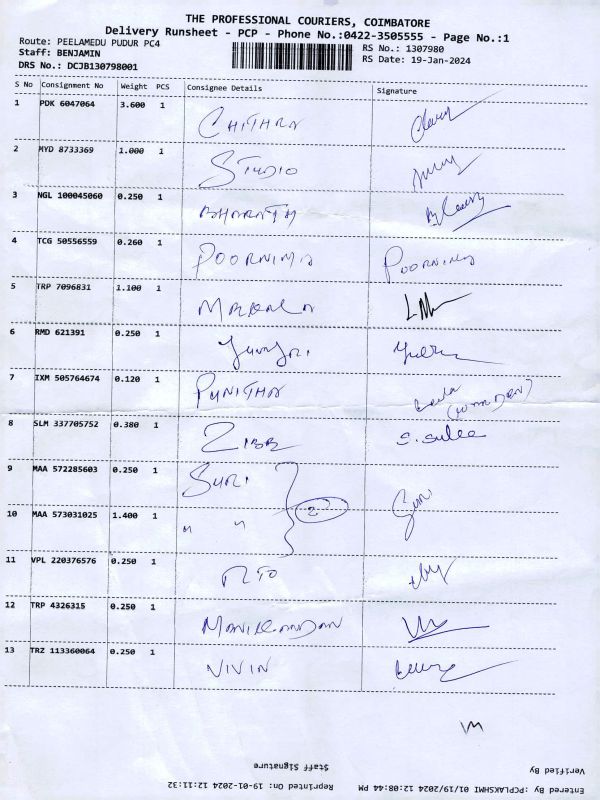 THE PROFESSIONAL COURIERS, COIMBATORE
Delivery Runsheet - PCP - Phone No.:0422-3505555 - Page No.:1
Route: PEELAMEDU PUDUR PC4 RS No.: 1307980
Staff: BENJAMIN RS Date: 19-Jan-2024
DRS No.: DCJB130798001
S No Consignment No Weight PCS Consignee Details Signature
1 PDK 6047064 3.600 1 CHITHRA
2 MYD 8733369 1.000 1 STUDIO
3 NGL 100045060 0.250 1 BHARATH
4 TCG 50556559 0.260 1 POORNIMA POORNIMA
5 TRP 7096831 1.100 1
6 RMD 621391 0.250 1
7 IXM 505764674 0.120 1 PUNITHA (WARDEN)
8 SLM 337705752 0.380 1
9 MAA 572285603 0.250 1 SURI Suri
10 MAA 573031025 1.400 1 " " 2
11 VPL 220376576 0.250 1 RTO
12 TRP 4326315 0.250 1 MANIKANDAN
13 TRZ 113360064 0.250 1 VIVIN
Verified By Staff Signature
Entered By :PCPLAKSHMI 01/19/2024 12:08:44 PM Reprinted On: 19-01-2024 12:11:32